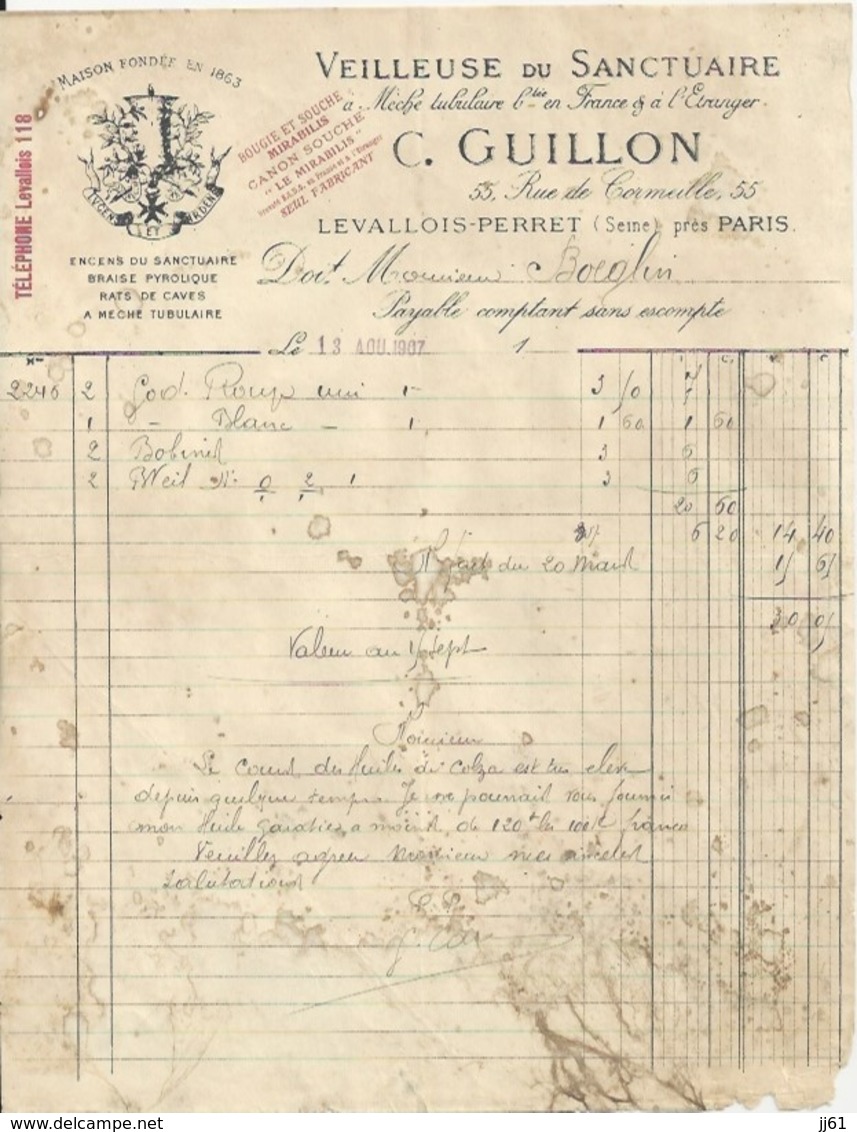 MAISON FONDÉE EN 1863
TÉLÉPHONE Levallois 118
LVCENS ET ARDENS
ENCENS DU SANCTUAIRE
BRAISE PYROLIQUE
RATS DE CAVES
A MECHE TUBULAIRE
BOUGIE ET SOUCHE
MIRABILIS
CANON SOUCHE
"LE MIRABILIS"
Breveté S.G.D.G. en France et à l'Etranger
SEUL FABRICANT
VEILLEUSE DU SANCTUAIRE
à Mèche tubulaire btée en France & à l'Etranger.
C. GUILLON
55, Rue de Cormeille, 55
LEVALLOIS-PERRET (Seine) près PARIS.
Doit Monsieur Boeglin
Payable comptant sans escompte
Le 13 AOU.1907 1
2246 2 God. Rouge uni 1 3 50 7
1 - Blanc - 1 1 60 1 60
2 Bobines 3 6
2 Nº 0 2 1 3 6
20 60
6 20 14 40
du 20 Mars 15 65
30 05
Valeur au 15 Sept
Monsieur
Le cours des Huiles de Colza est très élevé
depuis quelque temps. Je ne pourrait vous fournir
mon Huile garantie, a moins de 120f les 100k franco
Veuillez agréer Monsieur mes sincères
salutations
P.P.
jj61